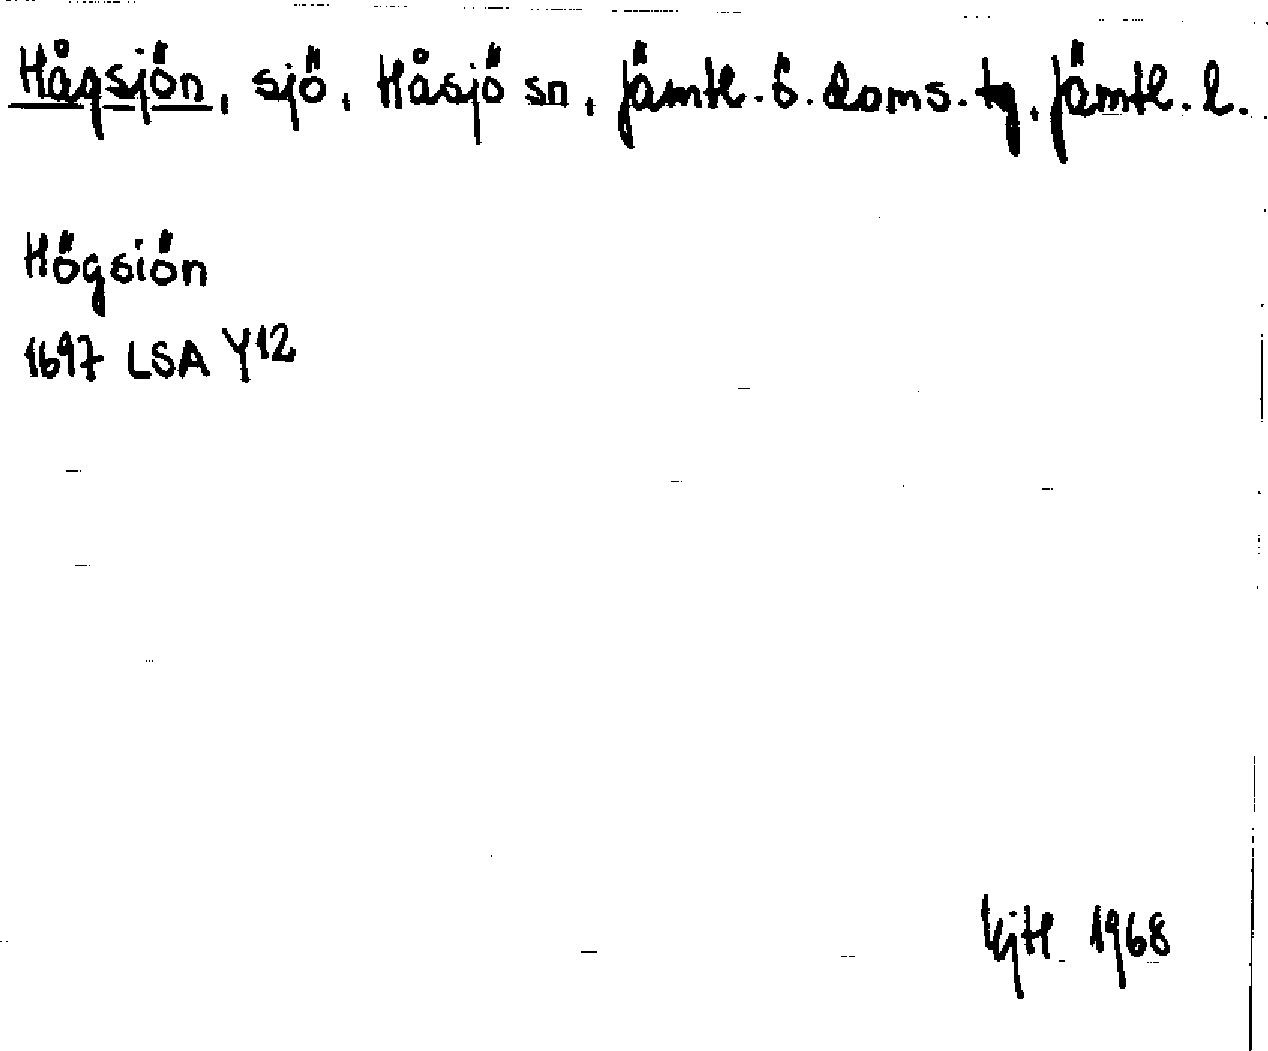 Hågsjön, sjö, Håsjö sn, Jämtl. ö. doms. tg, Jämtl. l.
Högsiön
1697 LSA Y12
1968